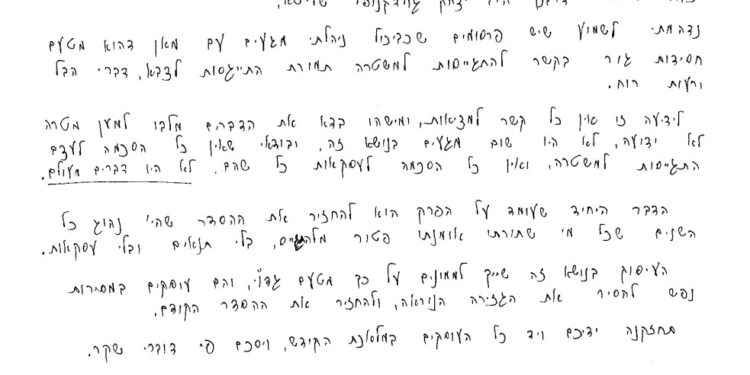 נדהמתי לשמוע שיש פרסומים שכביכול ניהלתי מגעים עם מאן דהוא מטעם
חסידות גור בקשר להתגייסות למשטרה תמורת התייגסות לצבא, דברי הבל
ורעות רוח.
לידיעה זו אין כל קשר למציאות, ומישהו בדא את הדברים מלבו למען מטרה
לא ידועה, לא היו שום מגעים בנושא זה, ובודאי שאין כל הסכמה לעצם
התגייסות למשטרה, ואין כל הסכמה לעסקאות כל שהם. לא היו דברים מעולם.
הדבר היחיד שעומד על הפרק הוא להחזיר את ההסדר שהי' נהוג כל
השנים שכל מי שתורתו אומנתו פטור מלהתגייס, בלי תנאים ובלי עסקאות.
העיסוק בנושא זה שייך לממונים על כך מטעם גדו"י, והם עוסקים במסירות
נפש להסיר את הגזירה הנוראה, ולהחזיר את ההסדר הקודם.
תחזקנה ידיכם ויד כל העוסקים במלאכת הקודש, ויסכר פי דוברי שקר.